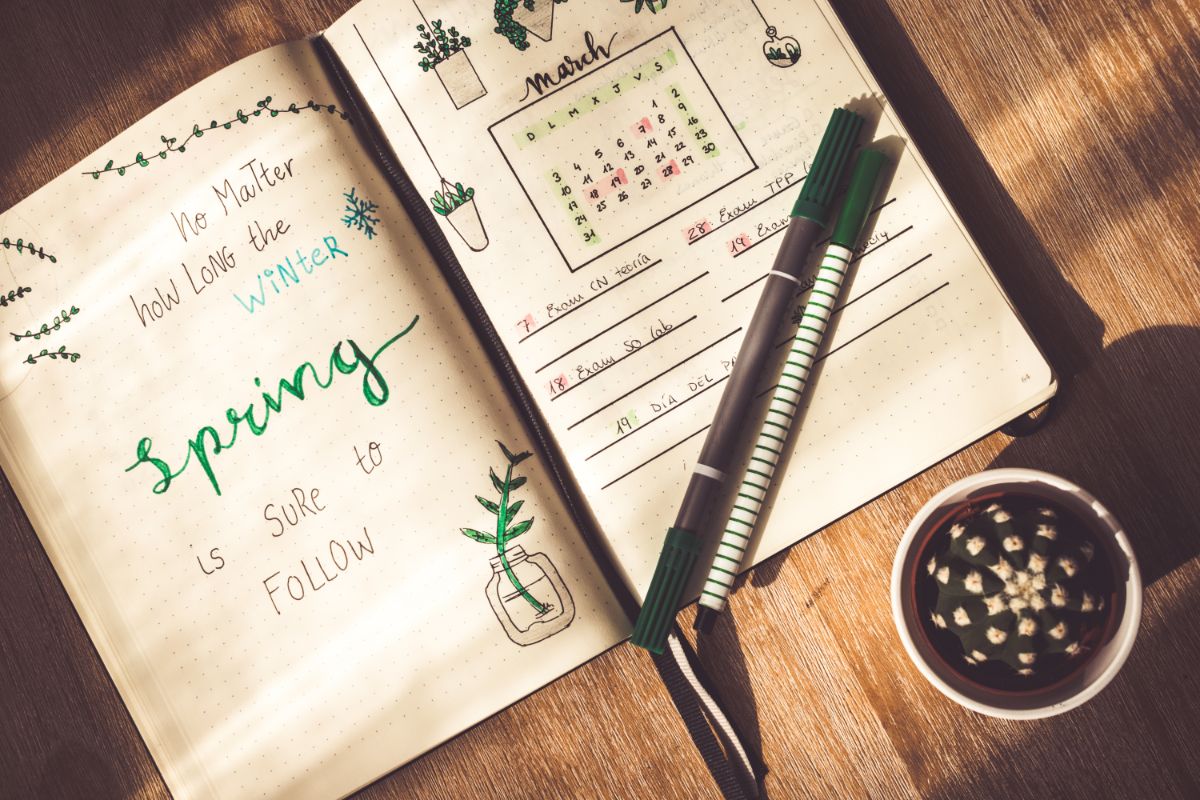 No MaTTer
how LONG the
WiNteR
Spring
is SuRe to
FOLLOW
march
D L M X J V S
1 2
3 4 5 6 7 8 9
10 11 12 13 14 15 16
17 18 19 20 21 22 23
24 25 26 27 28 29 30
31
7: Exam CN teoría
18: Exam SO lab
19: DÍA DEL
28: Exam TPP
19: Exam